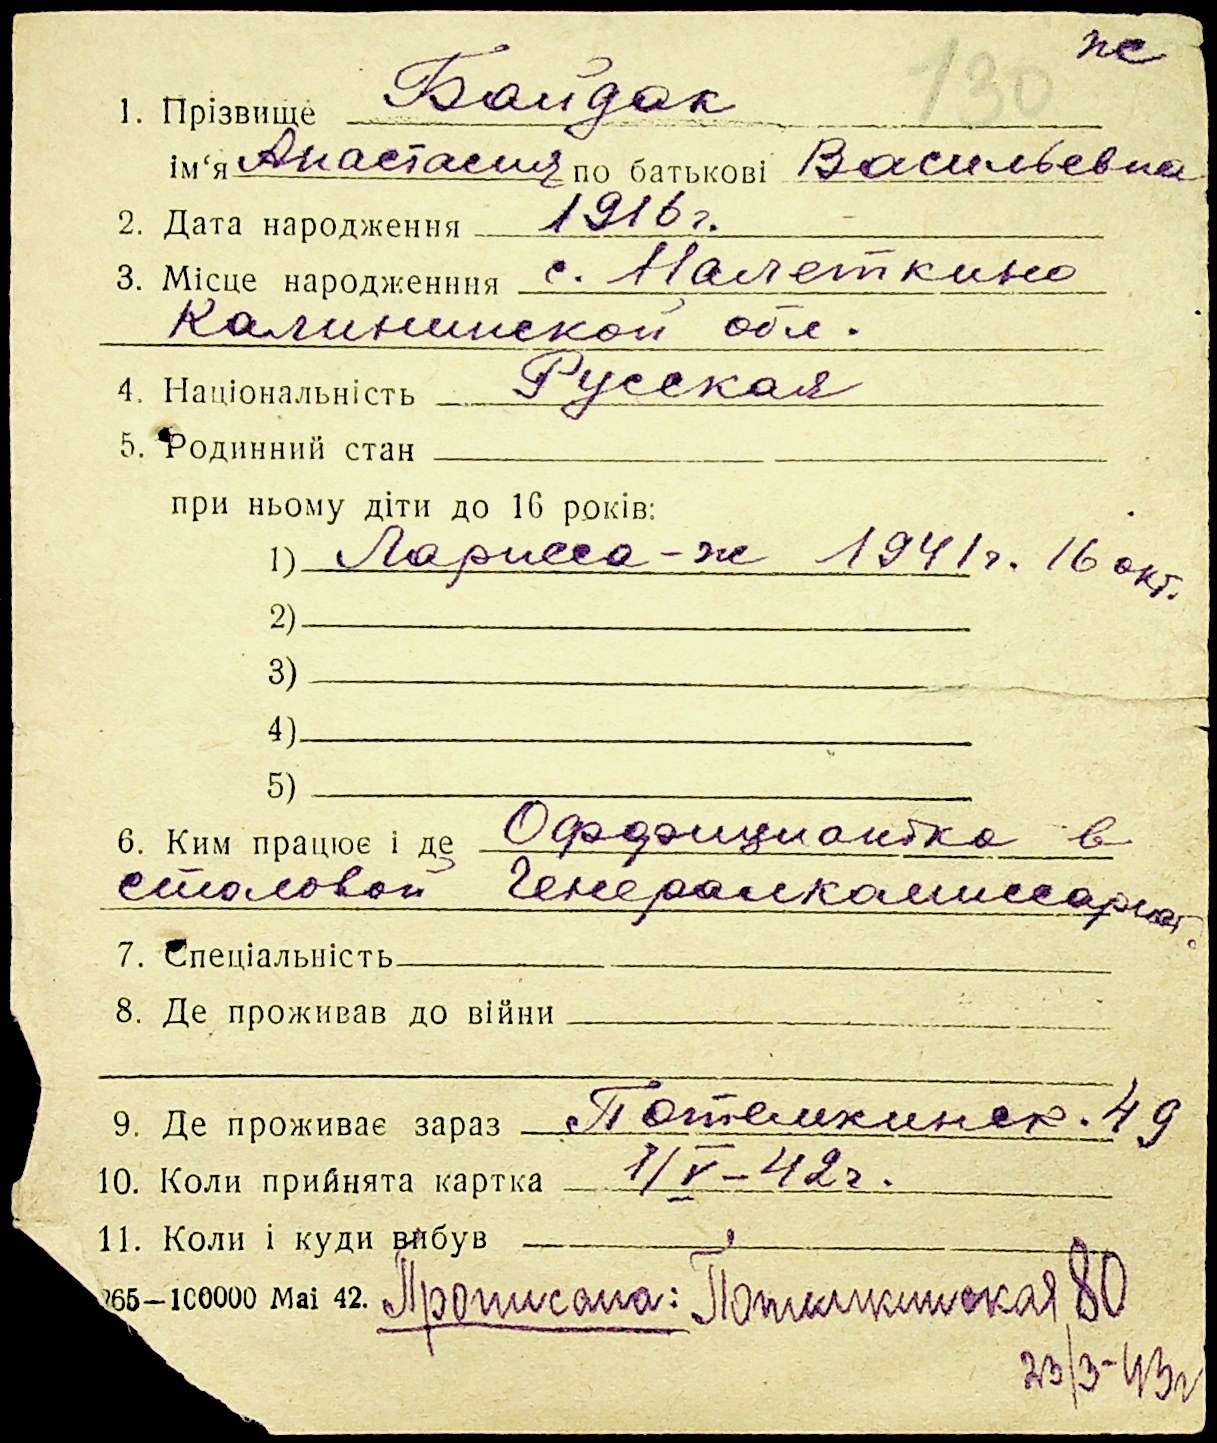 130 ж
1. Прізвище Байдак
ім'я Анастасия по батькові Васильевна
2. Дата народження 1916 г.
3. Місце народженння с. Налеткино
Калининской обл.
4. Національність Русская
5. Родинний стан
при ньому діти до 16 років:
1) Ларисса - ж 1941 г. 16 окт.
2)
3)
4)
5)
6. Ким працює і де Оффициантка в
столовой Генералкомиссариат.
7. Спеціальність
8. Де проживав до війни
9. Де проживає зараз Потемкинск. 49
10. Коли прийнята картка 1/V - 42 г.
11. Коли і куди вибув
265—100000 Маі 42. Прописана: Потемкинская 80
23/3-43 г